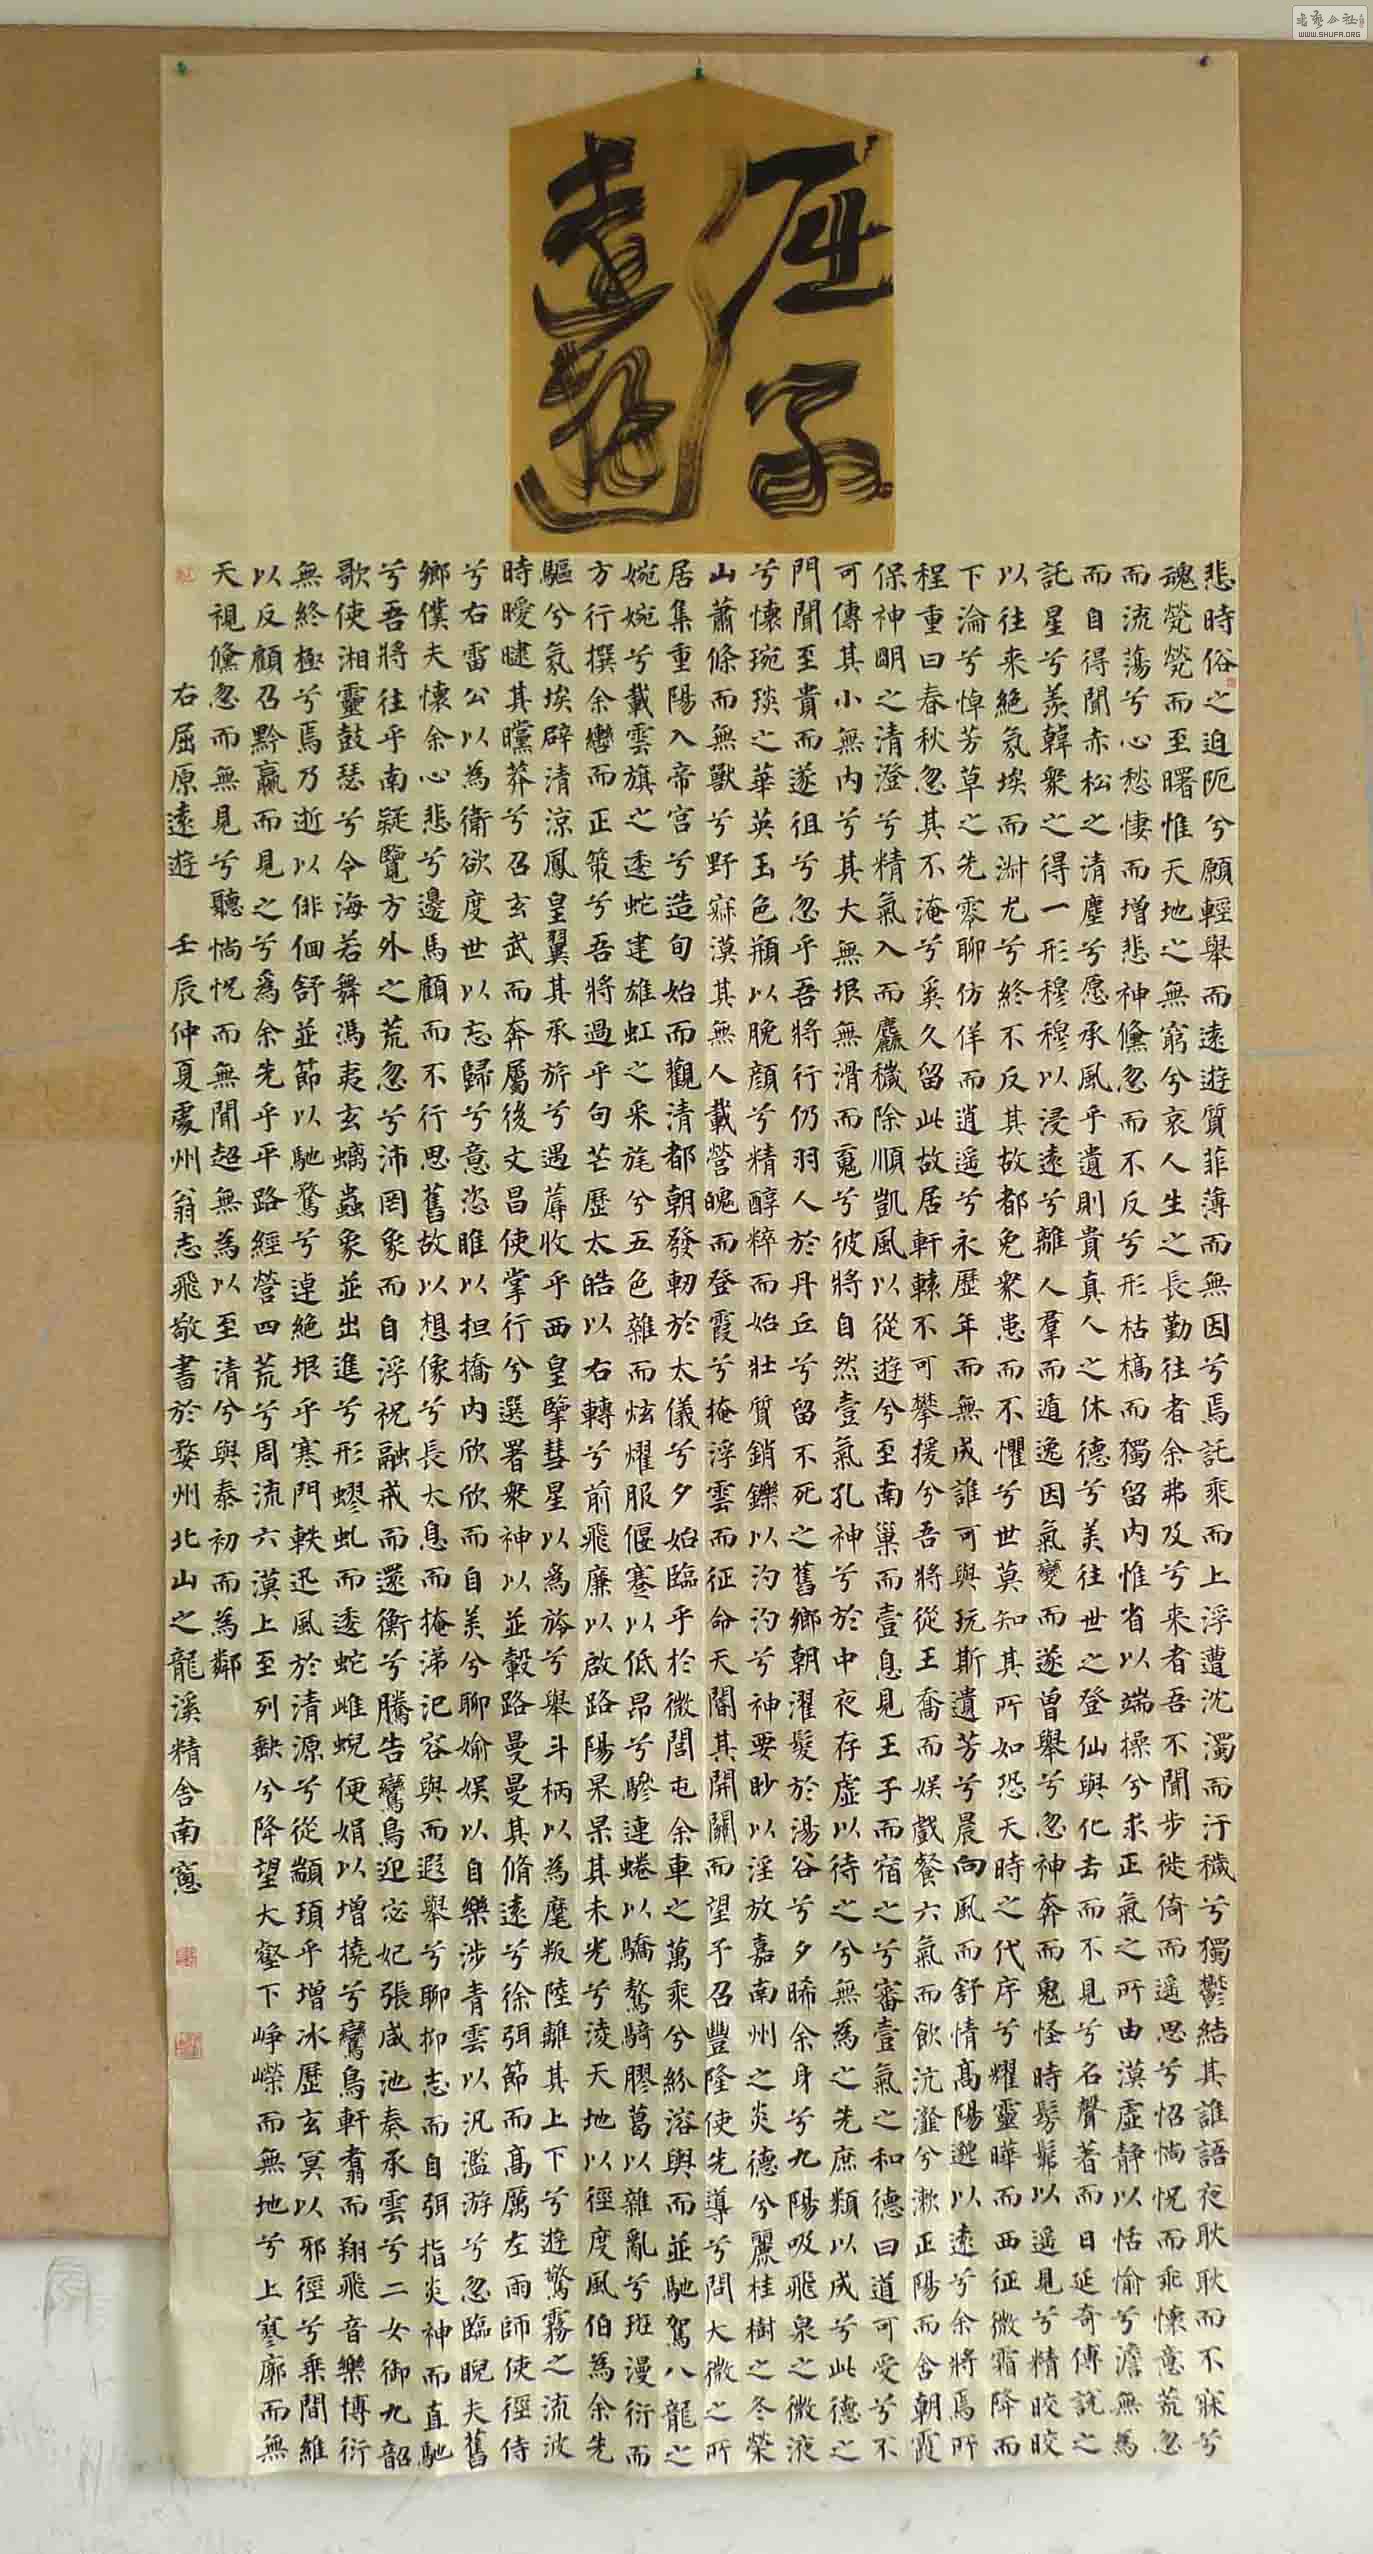 書藝公社
WWW.SHUFA.ORG
屈子
遠遊
悲時俗之迫阨兮願輕舉而遠遊質菲薄而無因兮焉託乘而上浮遭沈濁而汙穢兮獨鬱結其誰語夜耿耿而不寐兮
魂煢煢而至曙惟天地之無窮兮哀人生之長勤往者余弗及兮來者吾不聞步徙倚而遙思兮怊惝怳而乖懷意荒忽
而流蕩兮心愁悽而增悲神儵忽而不反兮形枯槁而獨留內惟省以端操兮求正氣之所由漠虛靜以恬愉兮澹無為
而自得聞赤松之清塵兮愿承風乎遺則貴真人之休德兮美往世之登仙與化去而不見兮名聲著而日延奇傅說之
託星兮羨韓眾之得一形穆穆以浸遠兮離人羣而遁逸因氣變而遂曾舉兮忽神奔而鬼怪時髣髴以遙見兮精皎皎
以往來絕氛埃而淑尤兮終不反其故都免眾患而不懼兮世莫知其所如恐天時之代序兮耀靈曄而西征微霜降而
下淪兮悼芳草之先零聊仿佯而逍遙兮永歷年而無成誰可與玩斯遺芳兮晨向風而舒情高陽邈以遠兮余將焉所
程重曰春秋忽其不淹兮奚久留此故居軒轅不可攀援兮吾將從王喬而娛戲餐六氣而飲沆瀣兮漱正陽而含朝霞
保神明之清澄兮精氣入而麤穢除順凱風以從遊兮至南巢而壹息見王子而宿之兮審壹氣之和德曰道可受兮不
可傳其小無內兮其大無垠無滑而䰟兮彼將自然壹氣孔神兮於中夜存虛以待之兮無為之先庶類以成兮此德之
門聞至貴而遂徂兮忽乎吾將行仍羽人於丹丘兮留不死之舊鄉朝濯髮於湯谷兮夕晞余身兮九陽吸飛泉之微液
兮懷琬琰之華英玉色頩以脕顏兮精醇粹而始壯質銷鑠以汋汋兮神要眇以淫放嘉南州之炎德兮麗桂樹之冬榮
山蕭條而無獸兮野寂漠其無人載營魄而登霞兮掩浮雲而征命天閽其開關而望予召豐隆使先導兮問大微之所
居集重陽入帝宮兮造旬始而觀清都朝發軔於太儀兮夕始臨乎於微閭屯余車之萬乘兮紛溶與而並馳駕八龍之
婉婉兮載雲旗之逶蛇建雄虹之采旄兮五色雜而炫燿服偃蹇以低昂兮驂連蜷以驕驁騎膠葛以雜亂兮斑漫衍而
方行撰余轡而正策兮吾將過乎句芒歷太皓以右轉兮前飛廉以啟路陽杲杲其未光兮淩天地以徑度風伯為余先
驅兮氛埃辟清涼鳳皇翼其承旂兮遇蓐收乎西皇擥彗星以為旍兮舉斗柄以為麾叛陸離其上下兮遊驚霧之流波
時曖曃其曭莽兮召玄武而奔屬後文昌使掌行兮選署眾神以並轂路曼曼其脩遠兮徐弭節而高厲左雨師使徑侍
兮右雷公以為衛欲度世以忘歸兮意恣睢以担撟內欣欣而自美兮聊媮娛以自樂涉青雲以汎濫游兮忽臨睨夫舊
鄉僕夫懷余心悲兮邊馬顧而不行思舊故以想像兮長太息而掩涕汜容與而遐舉兮聊抑志而自弭指炎神而直馳
兮吾將往乎南疑覽方外之荒忽兮沛罔象而自浮祝融戒而還衡兮騰告鸞鳥迎宓妃張咸池奏承雲兮二女御九韶
歌使湘靈鼓瑟兮令海若舞馮夷玄螭蟲象並出進兮形蟉虬而逶蛇雌蜺便娟以增撓兮鸞鳥軒翥而翔飛音樂博衍
無終極兮焉乃逝以俳佪舒並節以馳騖兮逴絕垠乎寒門軼迅風於清源兮從顓頊乎增冰歷玄冥以邪徑兮乘間維
以反顧召黔贏而見之兮為余先乎平路經營四荒兮周流六漠上至列缺兮降望大壑下崢嶸而無地兮上寥廓而無
天視儵忽而無見兮聽惝怳而無聞超無為以至清兮與泰初而為鄰
右屈原遠遊 壬辰仲夏處州翁志飛敬書於婺州北山之龍溪精舍南窗